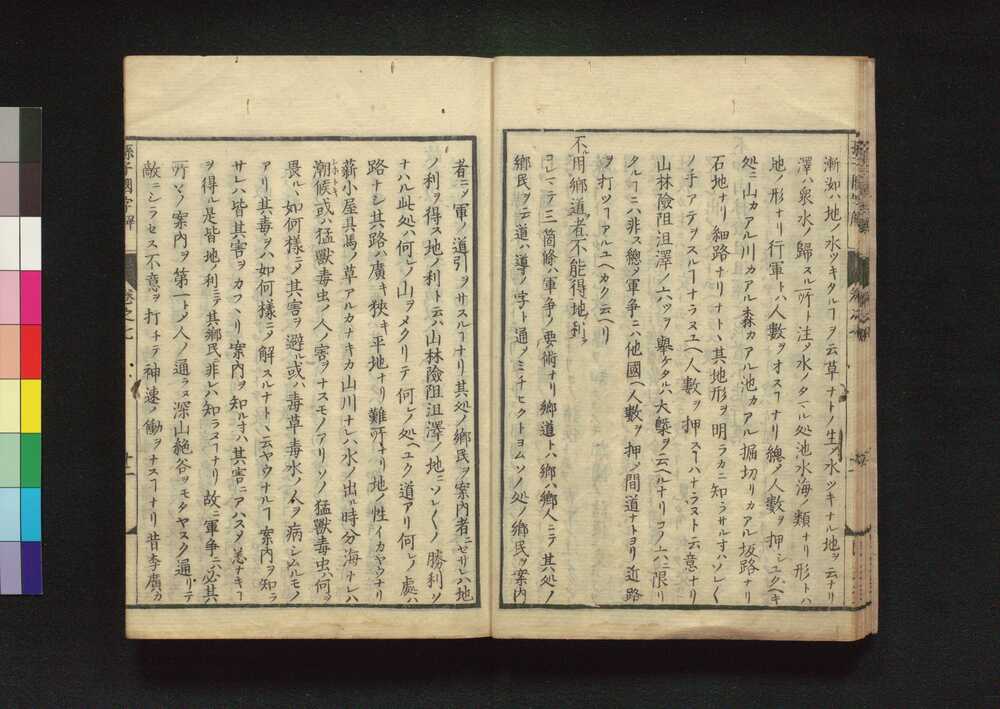 漸洳ハ地ノ水ツキタルヿヲ云草ナトノ生ノ水ツキナル地ヲ云ナリ
澤ハ衆水ノ歸スル所ト注ス水ノタマル処池水海ノ類ナリ形トハ
地ノ形ナリ行軍トハ人數ヲオスヿナリ總ノ人數ヲ押シユクヘキ
処ニ山カアル川カアル森カアル池カアル堀切リカアル坂路ナリ
石地ナリ細路ナリナト丶其地形ヲ明ラカニ知ラサル寸ハソレ〱
ノ手アテヲスルヿナラヌユヘ人數ヲ押スヿハナラヌト云意ナリ
山林險阻沮澤ノ六ツヲ舉ケタルハ大槩ヲ云ヘルナリコノ六ニ限リ
タルヿニハ非ス總ノ軍爭ニハ他國ヘ人數ヲ押シ間道ナトヨリ近路
ヲ打ツヿアルユヘカク云ヘリ
不用鄉道者不能得地利
コレマテ三箇條ハ軍爭ノ要術ナリ鄉道トハ鄉ハ鄉人ニテ其処ノ
鄉民ヲ云道ハ導ノ字ト通ノミチヒクトヨムソノ処ノ鄉民ヲ案内
者ニメ軍ノ道引ヲサスルヿナリ其処ノ鄉民ヲ案内者ニセサレハ地
ノ利ヲ得ス地ノ利ト云ハ山林險阻沮澤ノ地ニソレ〱ノ勝利ソ
ナハル此処ハ何レノ山ヲメクリテ何レノ処ヘユク道アリ何レノ處ハ
路ナシ其路ハ廣キ狹キ平地ナリ難所ナリ地ノ性イカヤウナリ
薪小屋具馬ノ草アルカナキカ山川ナレハ水ノ出ル時分海ナレハ
潮候或ハ猛獸毒虫ノ人ノ害ヲナスモノアリソノ猛獸毒虫ハ何ヲ
畏ル丶如何樣ニメ其害ヲ避ル或ハ毒草毒水ノ人ヲ病シムルモノ
アリ其毒ヲハ如何樣ニメ解スルナト丶云ヤウナルヿ案内ヲ知ラ
サレハ皆其害ヲカフ丶リ案内ヲ知ル寸ハ其害ニアハス恙ナキヿ
ヲ得ル是皆地ノ利ニテ其鄉民ニ非レハ知ラヌヿナリ故ニ軍爭ニハ必其
所々ノ案内ヲ第一トメ人ノ通ラヌ深山絶谷ヲモタヤスク通リテ
敵ニシラセス不意ヲ打チテ神速ノ働ヲナスヿナリ昔李廣カ
孫子國字解
卷之七